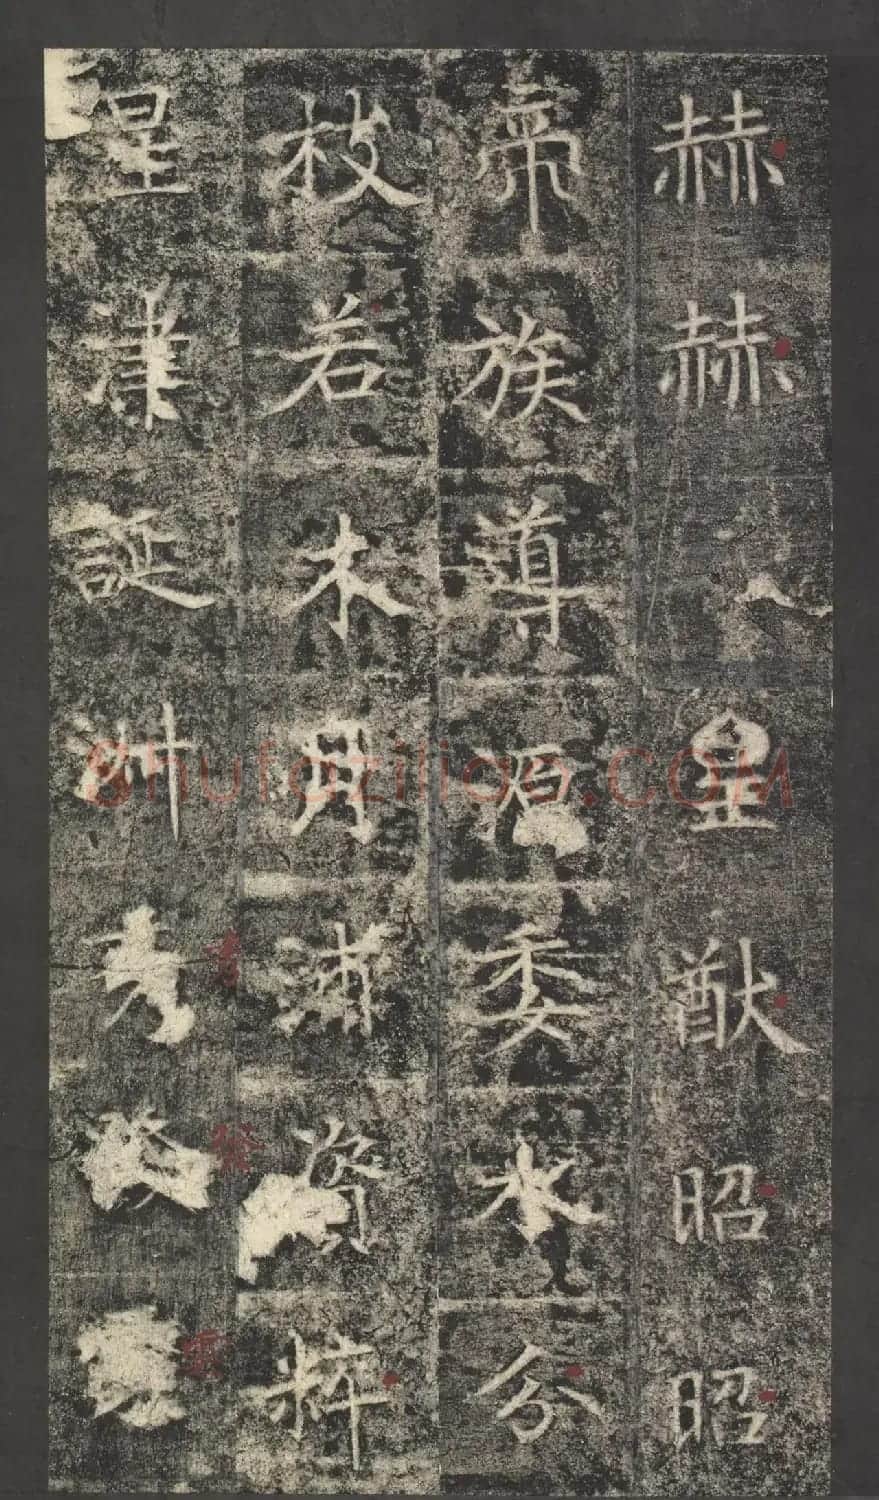 赫赫皇猷昭昭
帝族導源委水分
枝若木月浦資粹
星津誕發
Shufaziliao.COM